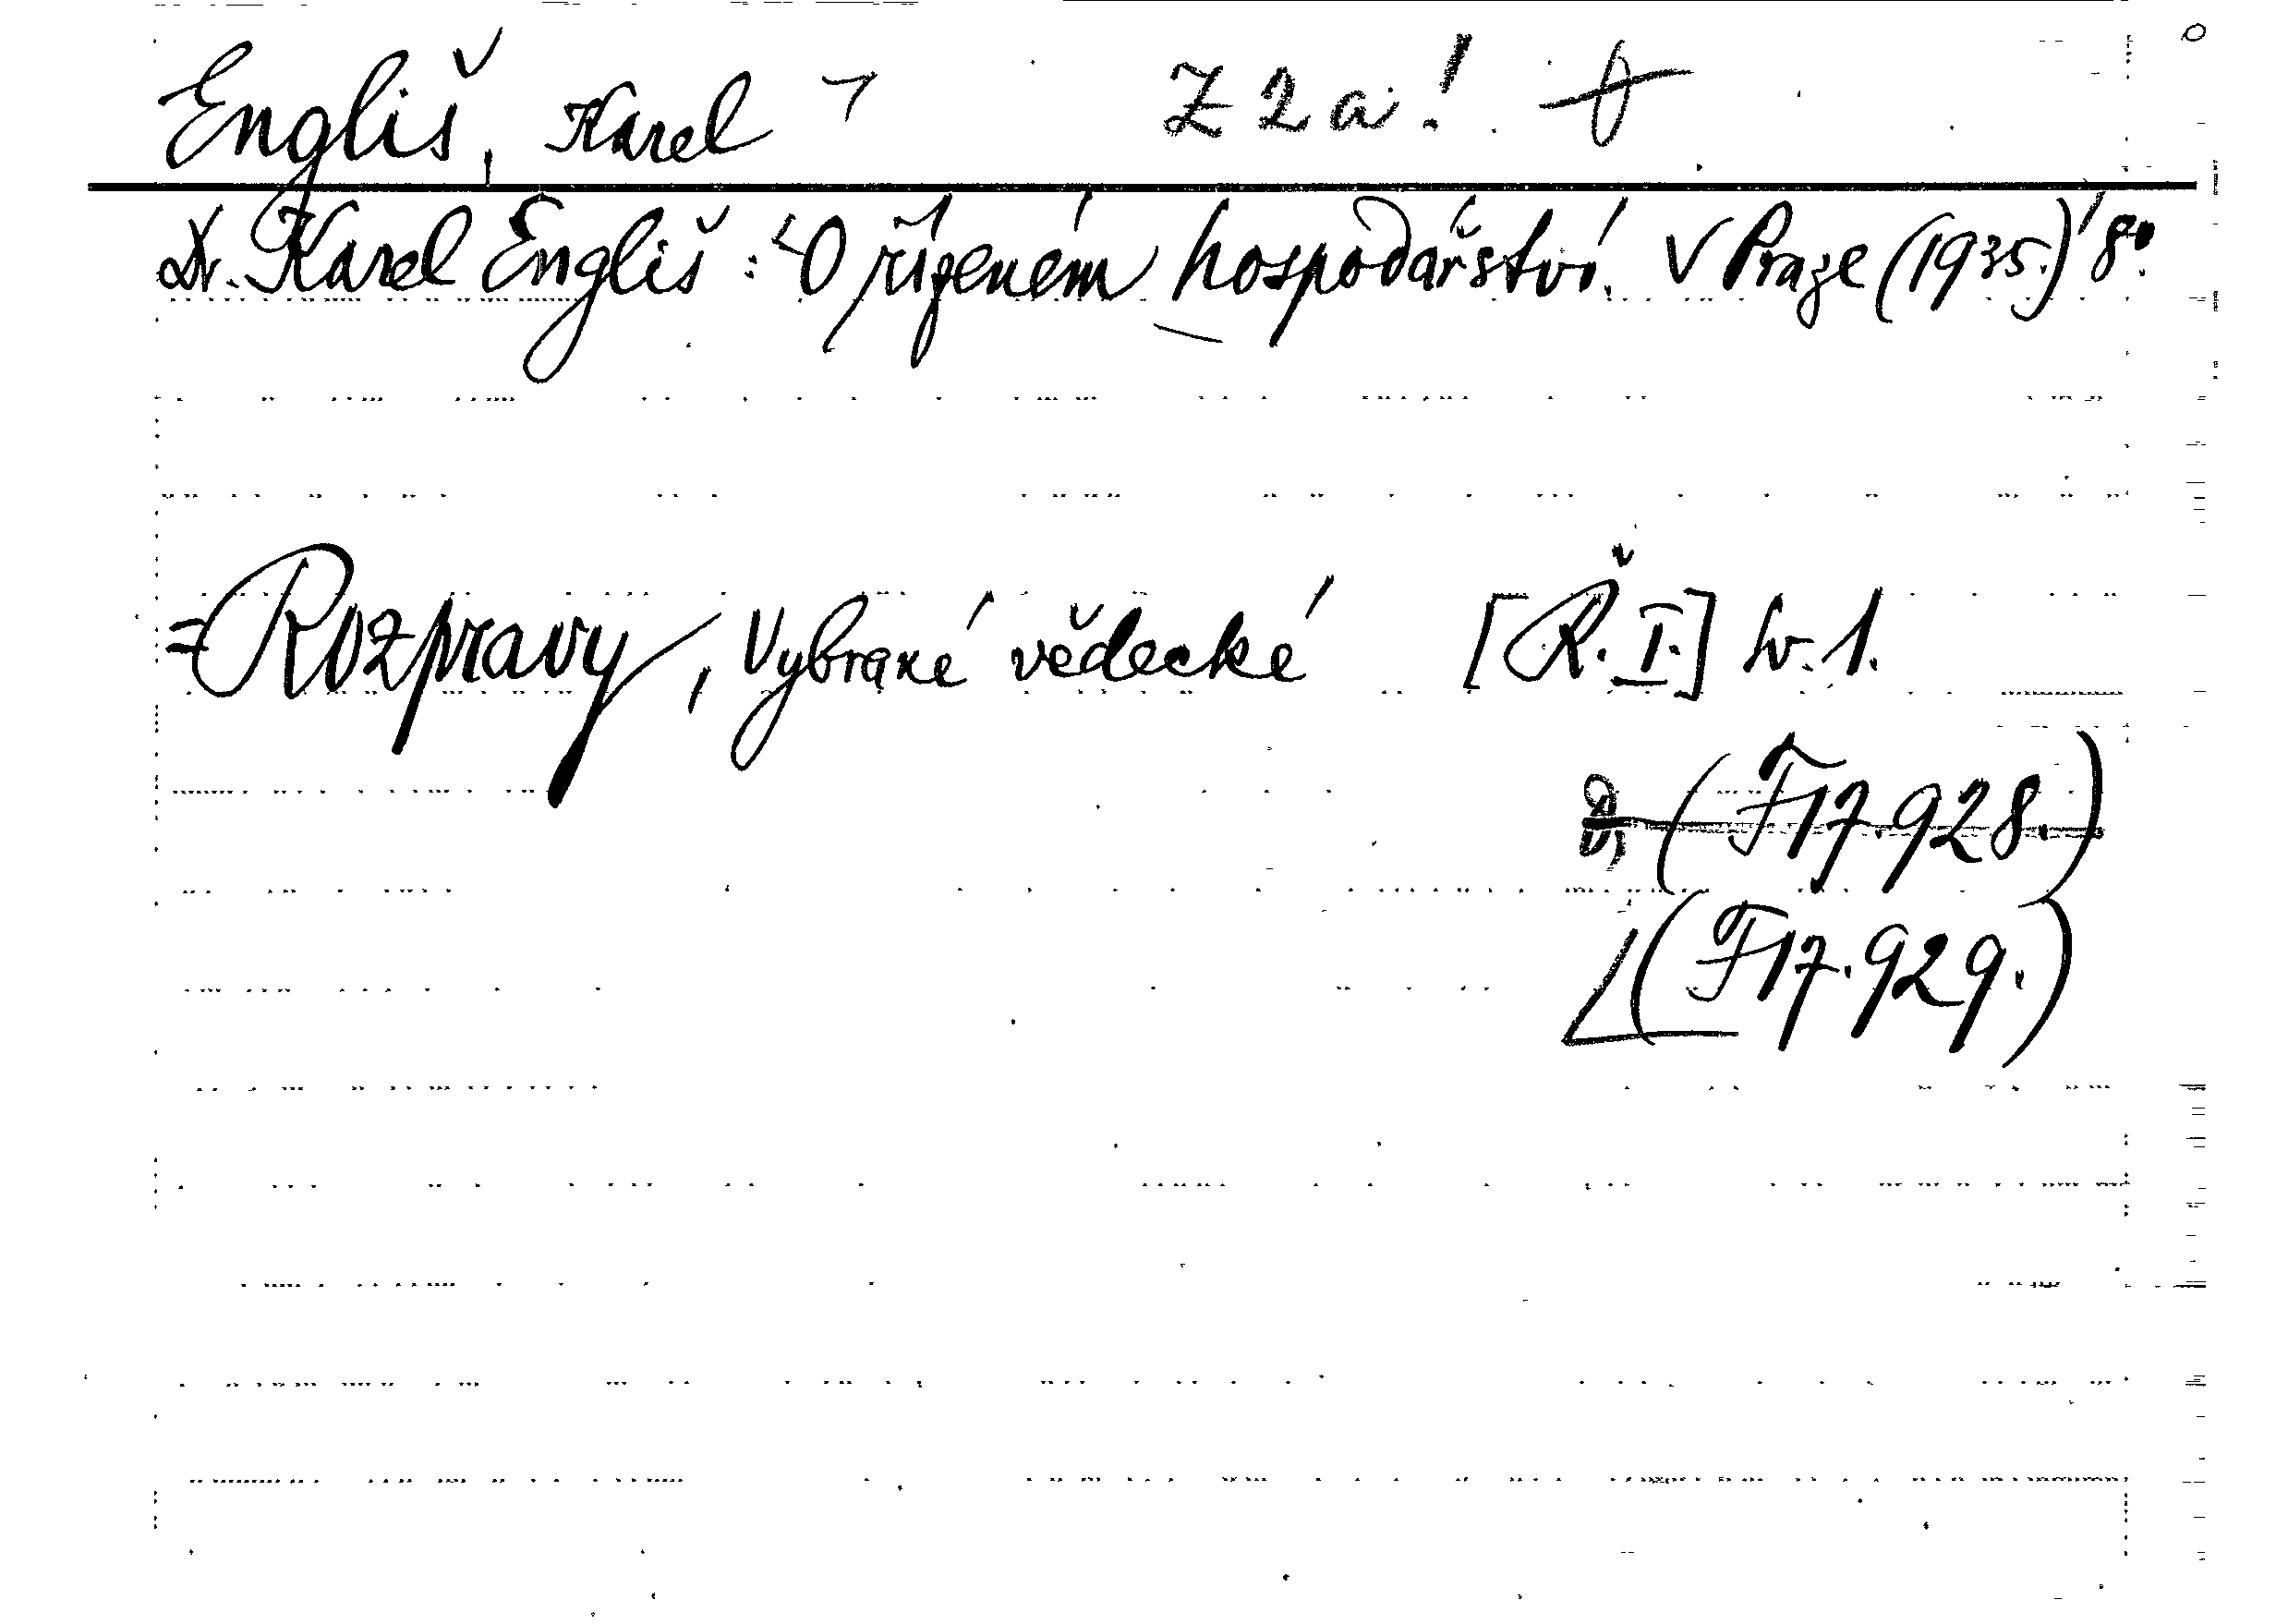 Engliš, Karel Z 2 a!
Dr. Karel Engliš: O řízeném hospodářství. V Praze (1935.) 8°.
=Rozpravy, Vybrané vědecké [Ř. I.] sv. 1.
(F17.928.)
(F17.929.)